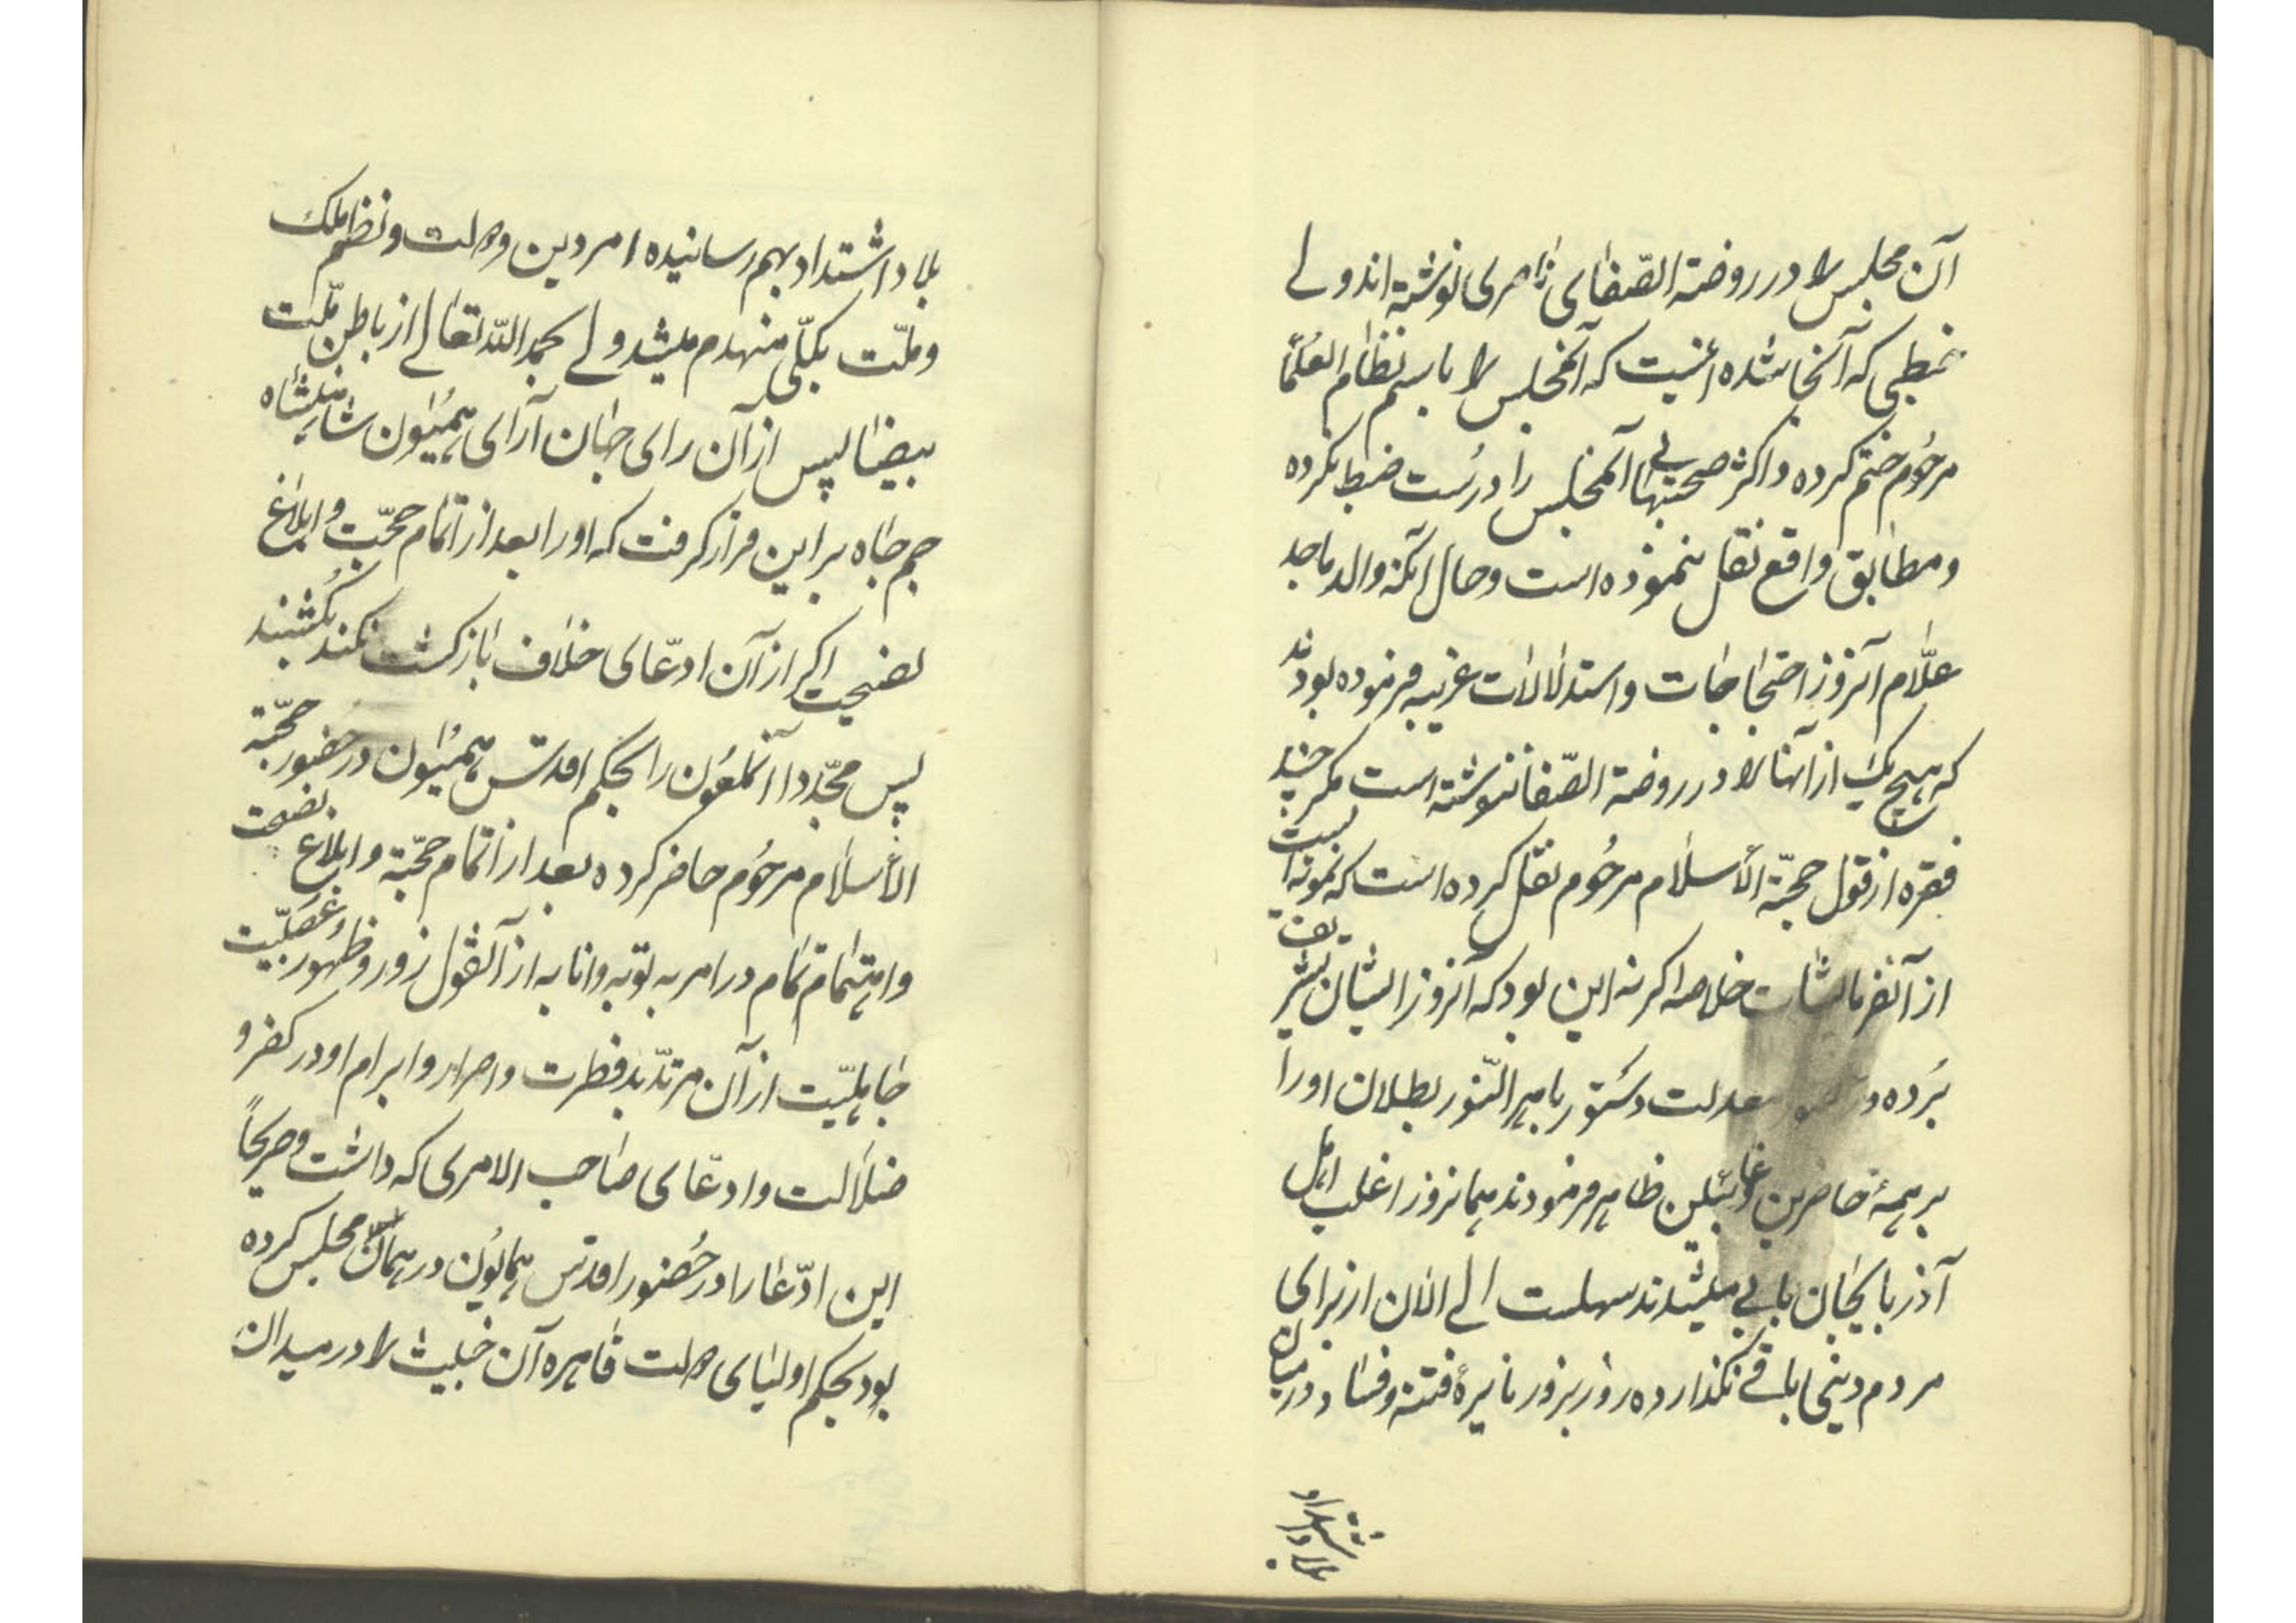 آن مجلس را در روضة الصّفای ناصری نوشته‌اند ولے
خبطی که آنجا شده اینست که آنمجلس را باسم نظام العُلَمٰا
مرحُوم ختم کرده و اکثر صحبتهاے آنمجلس را درُست ضبط نکرده
و مطابق واقع نقل ننموده است و حال آنکه والد ماجد
علّام آنروز احتجاجات و استدلالات غریبه فرموده بودند
که هیچ یک از آنها را در روضة الصّفا ننوشته است مگر چند
فقره از قول حجّة الأسلام مرحُوم نقل کرده است که نمونه ایست
از آنفرمایشات خلاصه اگر نه این بود که آنروز ایشان تشریف
بُرده در معدلت دستور باهر النّور بطلان او را
بر همهٔ حاضرین و غائبین ظاهر فرمودند همانروز اغلب اهل
آذربایجان بابے میشدند سهلست الے الآن از برای
مردم دینی باقے نگذارده روز بروز نایرهٔ فتنه و فساد در میان
بلاد اشتداد
بلاد اشتداد بهم رسانیده امر دین و دولت و نظم ملک
و ملّت بکلّی منهدم میشد ولے بحمد اللّه تعالے از باطن ملّت
بیضا پس از آن رای جهان آرای همیُون شاهنشاه
جم جاه بر این قرار گرفت که او را بعد از اتمام حجّت و ابلاغ
نصیحت اگر از آن ادّعای خلاف بازگشت نکند بکُشند
پس مجدّدا آنملعُون را بحکم اقدس همیُون در حضور حجّة
الأسلام مرحُوم حاضر کرده بعد از اتمام حجّة و ابلاغ نصیحت
و اهتمام تمام در امر به توبه و انابه از آنقول زور و ظهُور عَصَبیّت
جاهلیّت از آن مرتدّ بد فطرت و اصرار و ابرام او در کفر و
ضلالت و ادّعای صاحب الامری که داشت و صریحاً
این ادّعا را در حُضور اقدس همایُون در همان مجلس کرده
بود بحکم اولیای دولت قاهره آن خبیث را در میدان